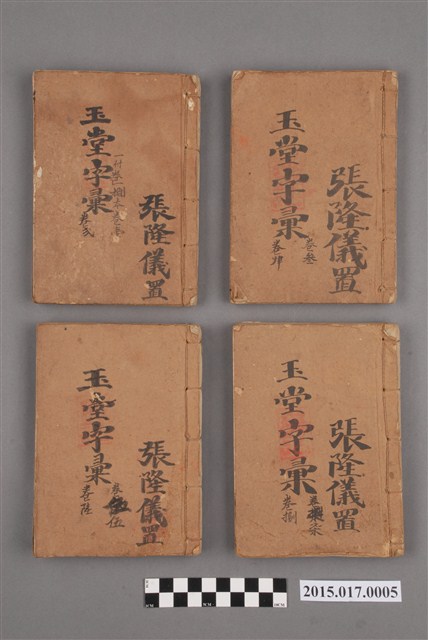 張隆儀置
玉堂字彙
卷貳
張隆儀置
玉堂字彙
卷叁
卷卯
張隆儀置
玉堂字彙
卷伍
卷陸
張隆儀置
玉堂字彙
卷柒
卷捌
2015.017.0005